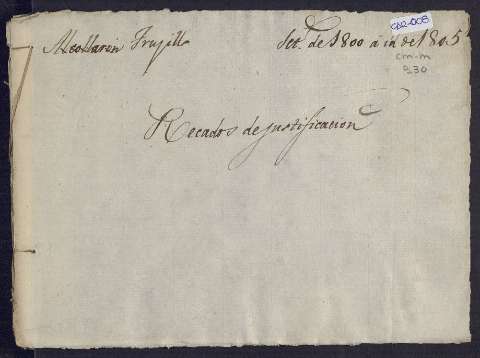 Trujillo
Set.e de 1800 á in de 1805
CAR-008
cm-m
930
Recados de justificacion